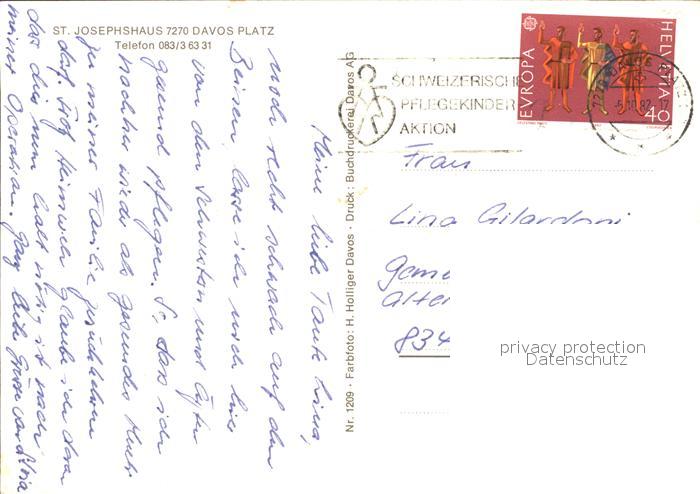 ST. JOSEPHSHAUS 7270 DAVOS PLATZ
Telefon 083/3 63 31
Meine liebe Tante Lina,
noch recht schwach auf den
Beinen, lasse ich mich hier
von den Schwestern und Ärzten
gesund pflegen. So dass ich
nachher wieder als gesundes Mutti
zu meiner Familie zurückkehren
darf. Trotz Heimweh glaube ich daran
das dies nun halt nötig ist nach
meiner Operation. Ganz liebe Grüsse
Nr. 1209 · Farbfoto: H. Holliger Davos · Druck: Buchdruckerei Davos AG
SCHWEIZERISCHE
PFLEGEKINDER
AKTION
EUROPA
HELVETIA
40
Frau
Lina Gilardoni
834
privacy protection
Datenschutz